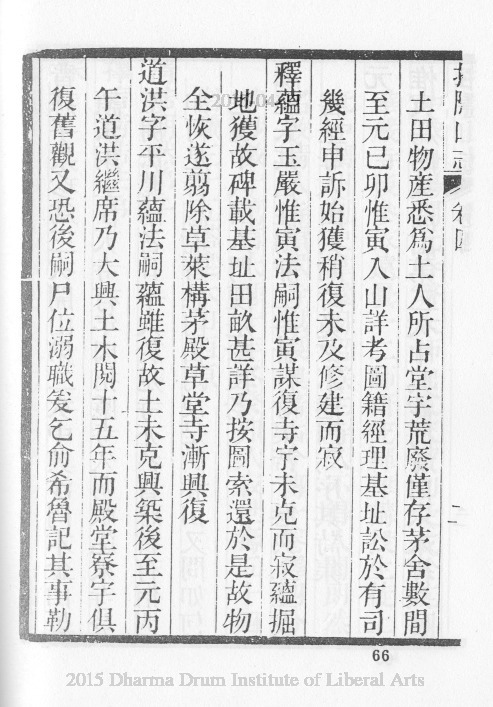 招隱山志 卷四
土田物產悉爲土人所占堂宇荒廢僅存茅舍數間
至元己卯惟寅入山詳考圖籍經理基址訟於有司
幾經申訴始獲稍復未及修建而寂
釋蘊字玉嚴惟寅法嗣惟寅謀復寺宇未克而寂蘊掘
地獲故碑載基址田畝甚詳乃按圖索還於是故物
全恢遂翦除草萊構茅殿草堂寺漸興復
道洪字平川蘊法嗣蘊雖復故土未克興築後至元丙
午道洪繼席乃大興土木閱十五年而殿堂寮宇俱
復舊觀又恐後嗣尸位溺職爰乞俞希魯記其事勒
66
2015 Dharma Drum Institute of Liberal Arts